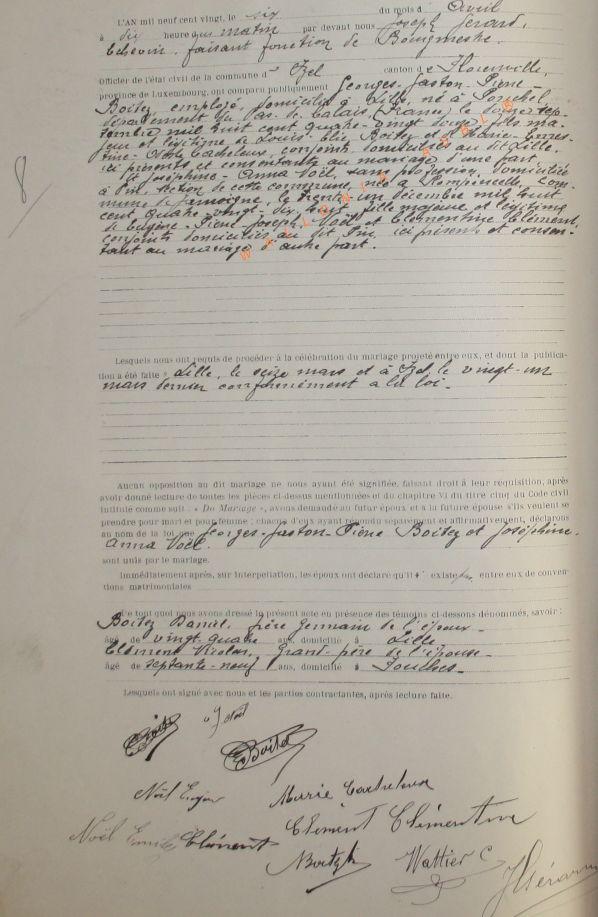 L'AN mil neuf cent vingt, le six du mois d'Avril
à dix heures du matin par devant nous Joseph Gérard,
Echevin, faisant fonction de Bourgmestre.
Officier de l'état civil de la commune d' Izel canton de Florenville,
province de Luxembourg, ont comparu publiquement Georges-Gaston-Pierre-
Boitez, employé, domicilié à Lille, né à
département du Pas de Calais, (France) le
mil huit cent quatre-vingt fils ma-
jeur et légitime de Louis- Boitez et Marie-Ernes-
tine- conjoints domiciliés au dit Lille,
ici présents et consentants au mariage d'une part.
Et Joséphine-Anna Noël, sans profession, domiciliée
à Pin, section de cette commune, née à com-
mune de Jamoigne, le trente-un décembre mil huit
cent quatre-vingt-dix-huit, fille majeure et légitime
de Eugène-Pierre-Joseph Noël et Clémentine Clément,
conjoints domiciliés au dit Pin, ici présents et consen-
tant au mariage d'autre part.
8
Lesquels nous ont requis de procéder à la célébration du mariage projeté entre eux, et dont la publica-
tion a été faite à Lille, le seize mars et à Izel, le vingt-un
mars dernier conformément à la loi.
Aucun opposition au dit mariage ne nous ayant été signifiée, faisant droit à leur réquisition, après
avoir donné lecture de toutes les pièces ci-dessus mentionnées et du chapitre VI du titre cinq du Code civil
intitulé comme suit : « Du Mariage », avons demandé au futur époux et à la future épouse s'ils veulent se
prendre pour mari et pour femme ; chacun d'eux ayant répondu séparément et affirmativement, déclarons
au nom de la loi que Georges-Gaston-Pierre Boitez et Joséphine-
Anna Noël.
sont unis par le mariage.
Immédiatement après, sur interpellation, les époux ont déclaré qu'il existe entre eux de conven-
tions matrimoniales
De tout quoi nous avons dressé le présent acte en présence des témoins ci-dessous dénommés, savoir :
Boitez Daniel, frère germain de l'époux
âgé de vingt-quatre ans, domicilié à Lille
Clément Nicolas, Grand-père de l'épouse
âgé de septante-neuf ans, domicilié à
Lesquels ont signé avec nous et les parties contractantes, après lecture faite.
Boitez J Noël
Boitez
Noël Marie
Clément Clémentine
Noël Clément
Wattier C
J Gérard